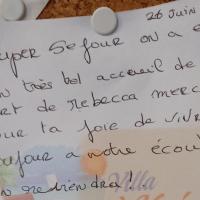 26 Juin
uper sejour on a e
n très bel accueil de
rt de Rebecca merc
our ta joie de vivr
oujour a notre écou
on reviendra!
Villa